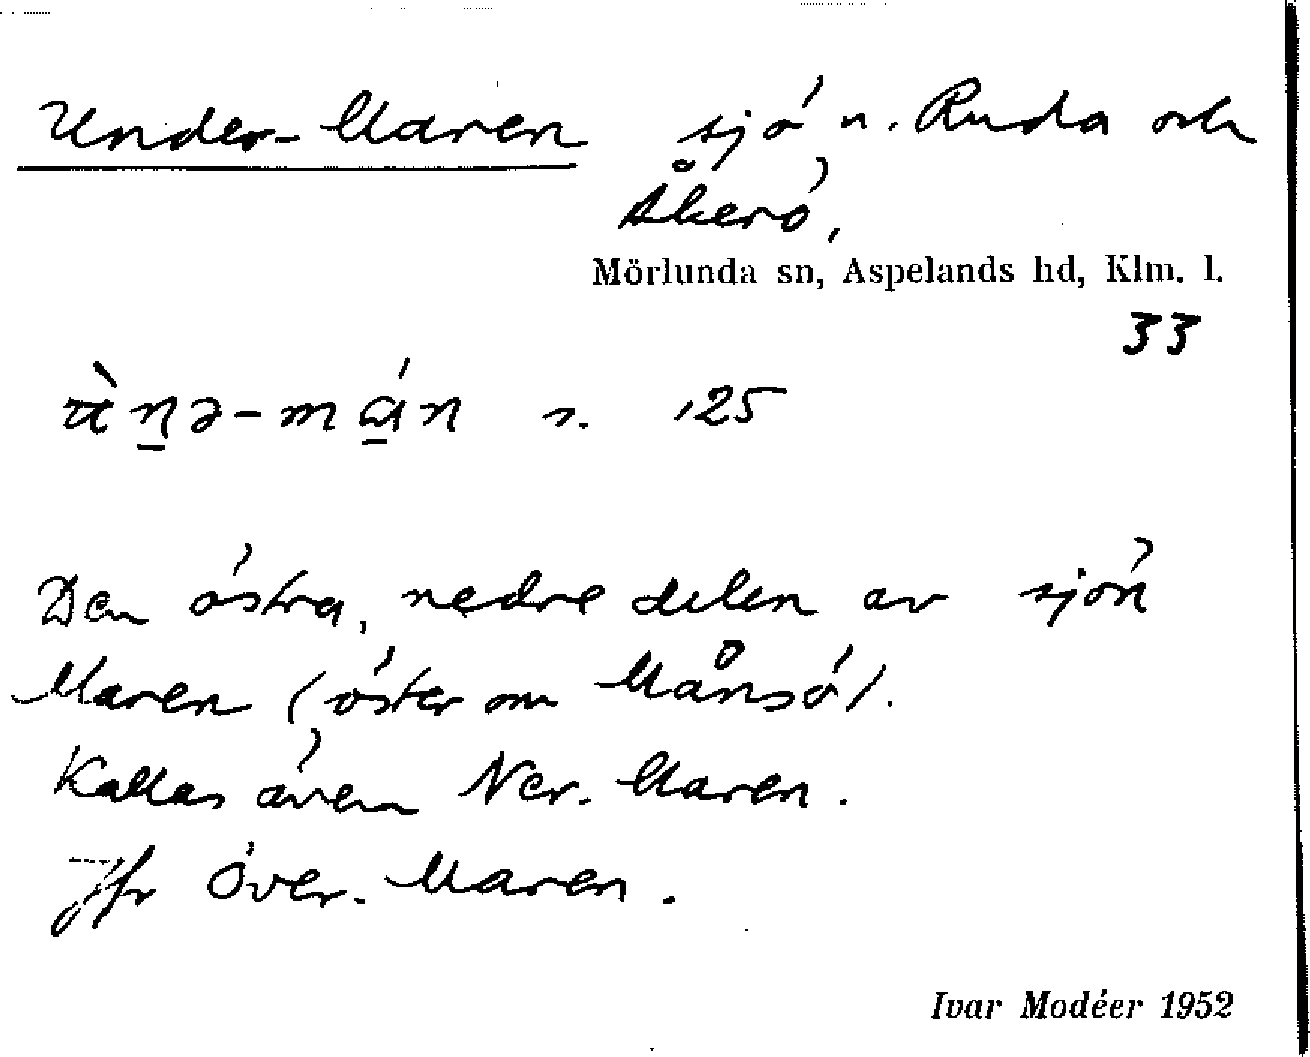 Under-Maren sjö u. Ruda och
Åkerö,
Mörlunda sn, Aspelands hd, Klm. l.
33
s. 25
Den östra, nedre delen av sjön
Maren (öster om Månsö).
Kallas även Ner-Maren.
Jfr Över-Maren.
Ivar Modéer 1952